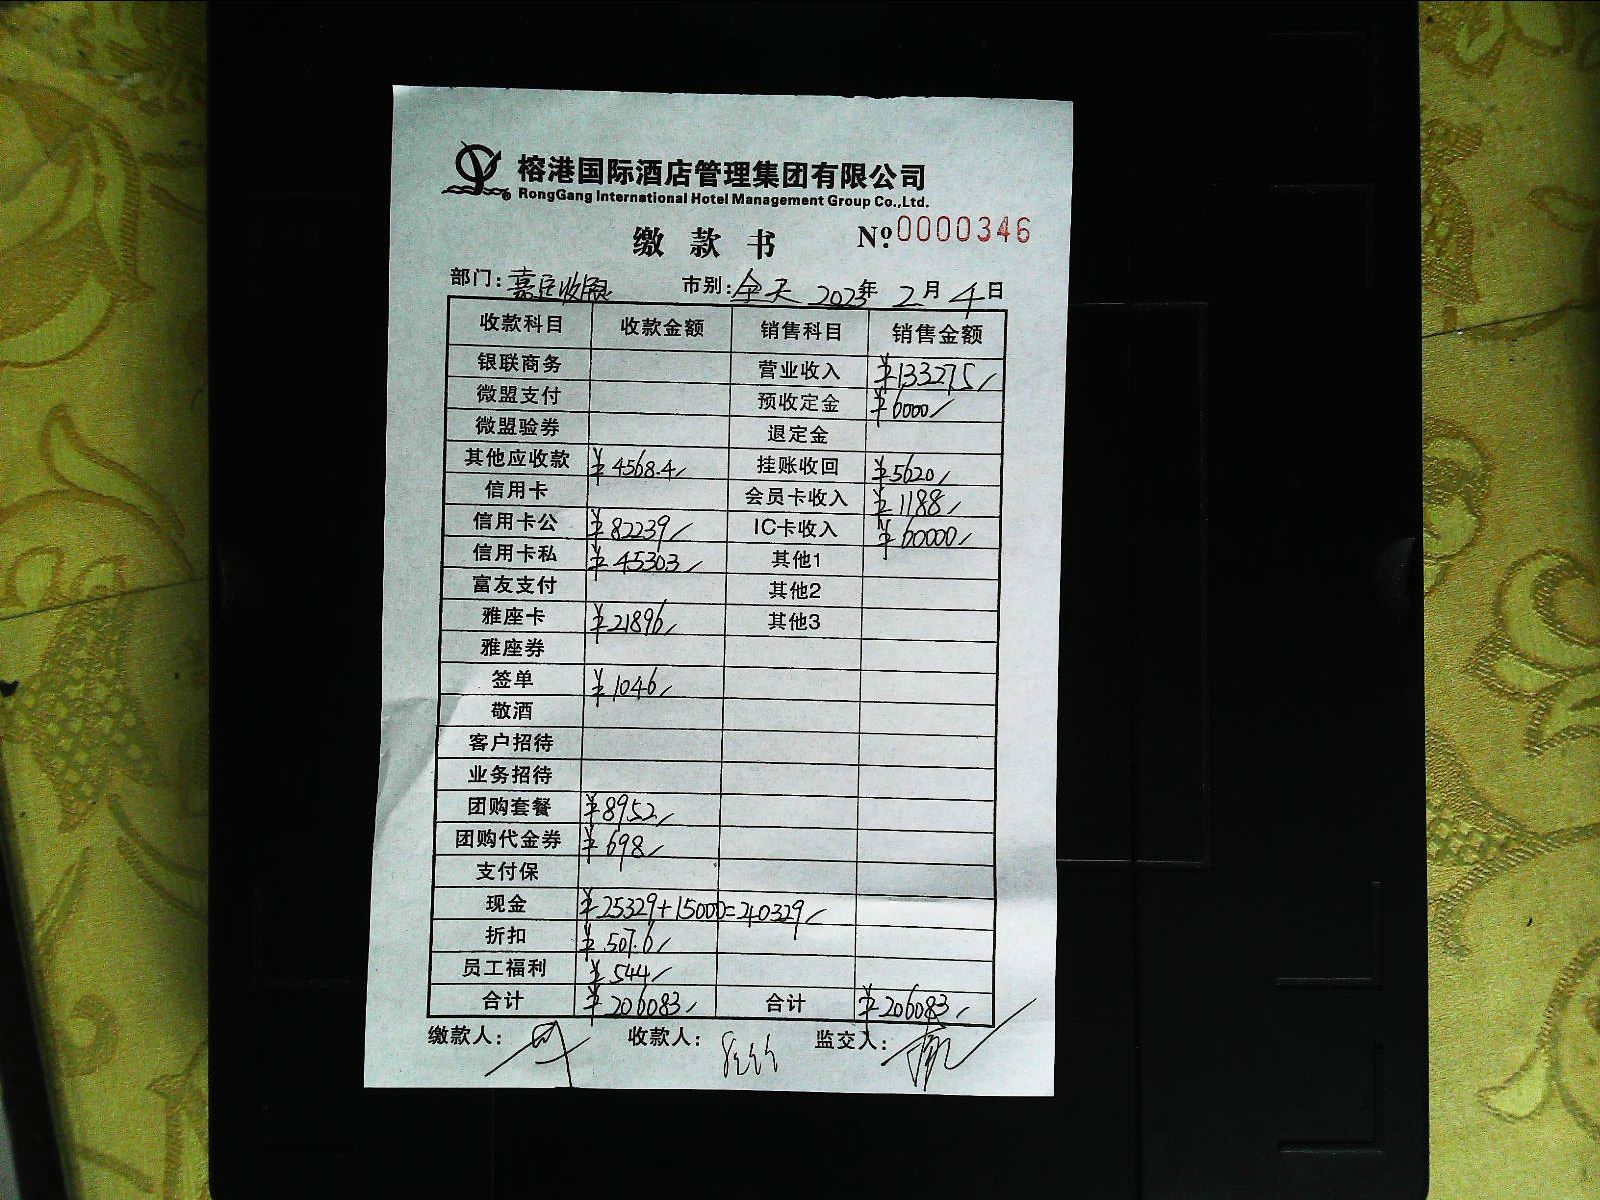 榕港国际酒店管理集团有限公司
RongGang International Hotel Management Group Co.,Ltd.
缴款书 Nº:0000346
部门:嘉臣收银 市别:全天 2023年 2月 4日
收款科目 收款金额 销售科目 销售金额
银联商务 营业收入 ¥133275/
微盟支付 预收定金 ¥6000/
微盟验券 退定金
其他应收款 ¥4568.4/ 挂账收回 ¥5620/
信用卡 会员卡收入 ¥1188/
信用卡公 ¥82239/ IC卡收入 ¥60000/
信用卡私 ¥45303/ 其他1
富友支付 其他2
雅座卡 ¥21896/ 其他3
雅座券
签单 ¥1046/
敬酒
客户招待
业务招待
团购套餐 ¥8952/
团购代金券 ¥698/
支付保
现金 ¥25329+15000=40329/
折扣 ¥507.6/
员工福利 ¥544/
合计 ¥206083/ 合计 ¥206083/
缴款人: 收款人: 监交人: